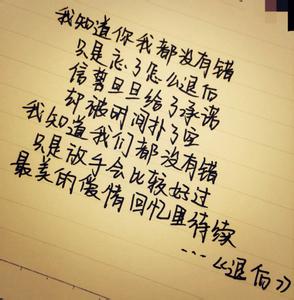 我知道你我都没有错
只是忘了怎么退后
信誓旦旦给了承诺
却被时间扑了空
我知道我们都没有错
只是放手会比较好过
最美的爱情回忆里待续
…《退后》